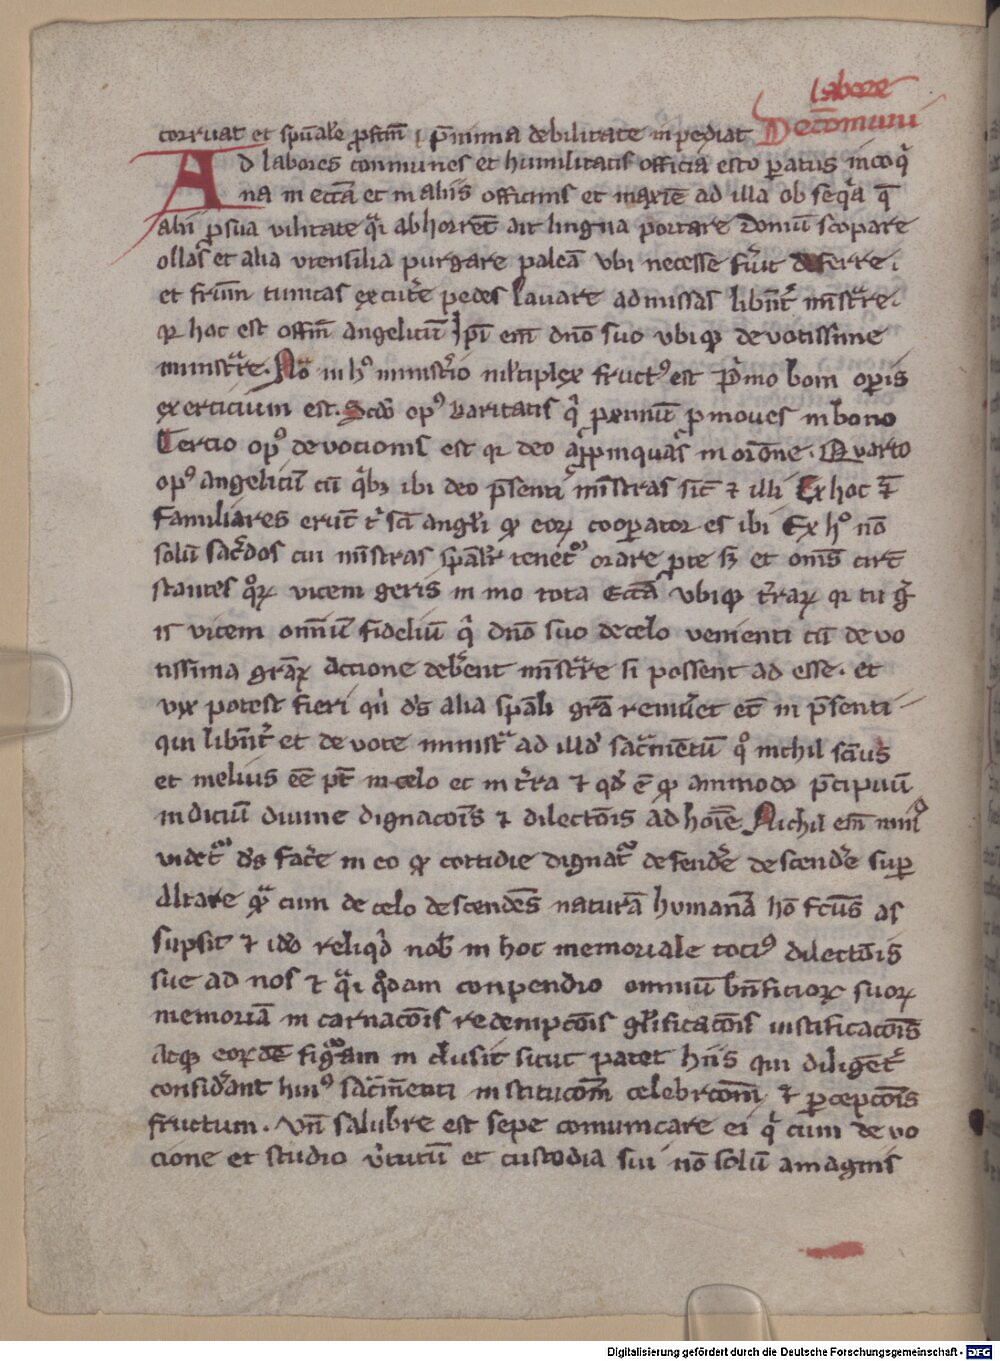 labore
corruat et spūale ꝓfcm̄ ⁊ p̄nimia debilitate inpediat De cōmuni
Ad labores conmunes et humilitatis officia esto ꝑatus in coqͥ
na in eccā et in aliis officinis et maxīe ad illa obseqͥa q̄
alii ꝓ sua vilitate qͣi abhorrēt aīt lingna portare domū scopare
ollas et alia vtensilia purgare paleā vbi necesse fu̓it deferre.
et frūm tunicas excutēe pedes lauare ad missas libn̄t̓ mīstͣre.
qꝛ hoc est offm̄ angelicū ip̄i em̄ dn̄o suo vbiqꝫ deuotissime
ministͣre. Nā in hͦ ministͥo ml̓tiplex fruct᷒ est pͥmo boni oꝑis
exercicium est. Scd̓o op᷒ karitatis qͥ ꝓximū ꝓmoues in bono
Tercio op᷒ deuocionis est qꝛ deo aꝓpinquas in orōne. Quarto
op᷒ angelicū cū qͥbꝫ ibi deo p̄senti mīstras sic̄ ⁊ illi Ex hoc t̄
familiares erūt tͥ scī angl̓i qꝫ eoꝝ cooꝑator es ibi Ex hͦ nō
solū sac̓dos cui mīstras spāl̓r tenet᷑ orare ꝓ te sꝫ et om̄s circū
stantes qͦꝝ vicem geris in mo tota eccā vbiqꝫ t̓raꝝ qꝛ tu g̓
is vicem omniū fideliū qͥ dn̄o suo de celo venienti cū deuo
tissima graꝝ accione deb̓ent mīstͣre si possent adesse. et
vix potest fieri qn̄ d̓s alia spāli grā remun̓et eū in p̄senti
qui libn̄t̓ et deuote ministͣt ad illd̓ sac̓mentū qͦ nichil sct̄ius
et melius eē pt̄ in celo et in t̓ra ⁊ qd̓ ē qꝫ ammodo p̄cipuū
indiciū diuine dignacōis ⁊ dilectōis ad hoīe Nichil em̄ nimi᷒
videt᷑ d̓s fac̓e in eo qꝫ cottidie dignat᷑ defend̓e descend̓e suꝑ
altare qͣ cum de celo descendēs naturā humanā hō fcūs as
supsit ⁊ id̓o reliqͥd nob̓ in hoc memoriale toci᷒ dilectōis
sue ad nos ⁊ qͣi qͦdam conpendio omniū bn̄ficioꝝ suoꝝ
memoriā incarnacōis redempcōis gl̓ificacōis iustificacōis
atqꝫ eorūdē figͣam in cl̓usit sicut patet hiis qui diligēt̓
consid̓ant hui᷒ sac̓menti institucōm celebrcōm ⁊ ꝑcepcōis
fructum. Vn̄ salubre est sepe comunicare ei qͥ cum deuo
cione et studio v̓tutū et custodia sui nō solū a magnis
Digitalisierung gefördert durch die Deutsche Forschungsgemeinschaft - DFG